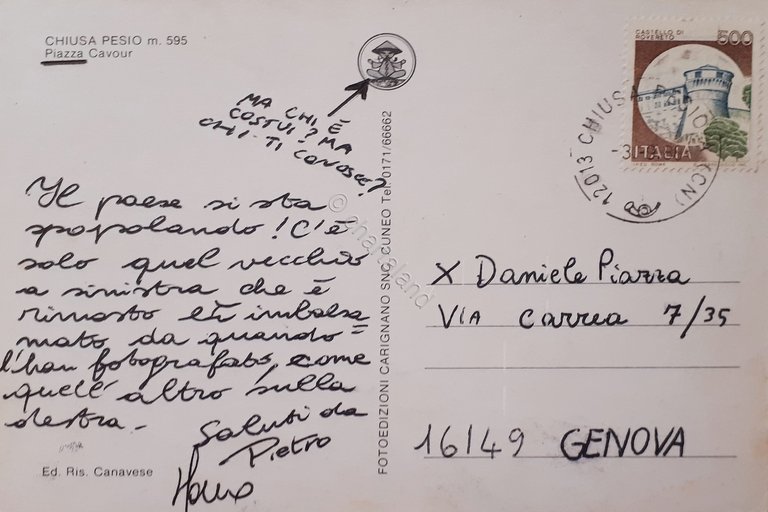 CHIUSA PESIO m. 595
Piazza Cavour
MA CHI È
COSTUI? MA
CHI TI CONOSCE?
Il paese si sta
spopolando! C'è
solo quel vecchio
a sinistra che è
rimasto lì imbalsa
mato da quando=
l'han fotografato, come
quell'altro sulla
destra.
Saluti da
Pietro
Ed. Ris. Canavese
FOTOEDIZIONI CARIGNANO SNC. CUNEO Tel. 0171/66662
© chartaland
CASTELLO DI
ROVERETO
500
ITALIA
12013 CHIUSA PESIO (CN)
X Daniele Piazza
VIA Carrea 7/35
16149 GENOVA